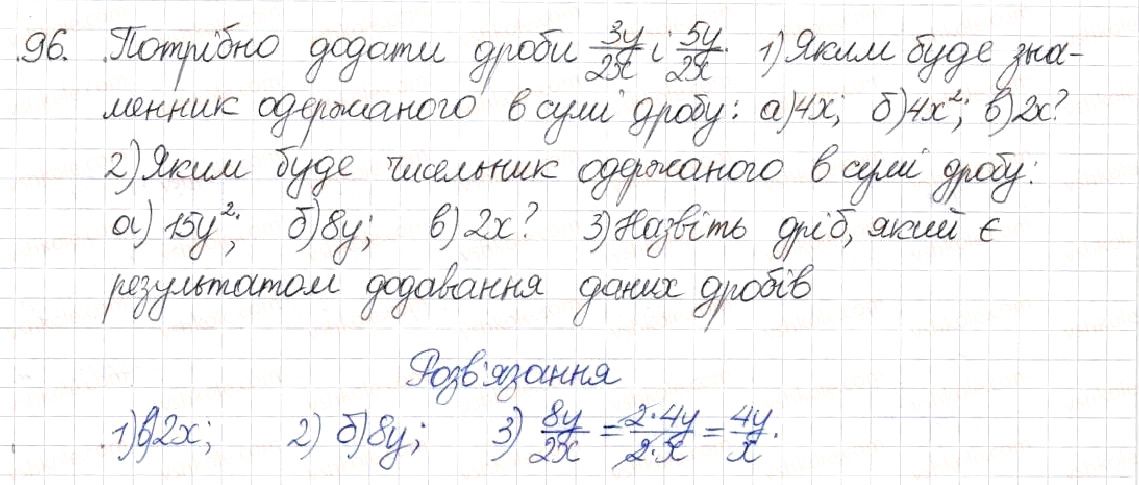 96. Потрібно додати дроби 3y/2x і 5y/2x. 1) Яким буде зна-
менник одержаного в сумі дробу: а) 4x; б) 4x²; в) 2x?
2) Яким буде чисельник одержаного в сумі дробу:
а) 15y²; б) 8y; в) 2x? 3) Назвіть дріб, який є
результатом додавання даних дробів
Розв'язання
1) в) 2x; 2) б) 8y; 3) 8y/2x = 2·4y/2·x = 4y/x.